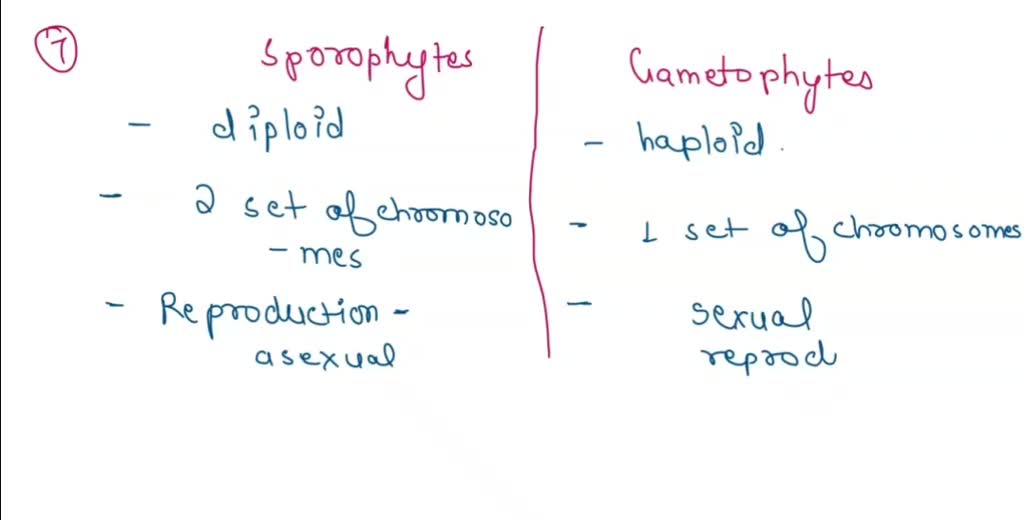 7
Sporophytes
- diploid
- 2 set of chromoso
- mes
- Reproduction -
asexual
Gametophytes
- haploid.
- 1 set of chromosomes
- sexual
reprod